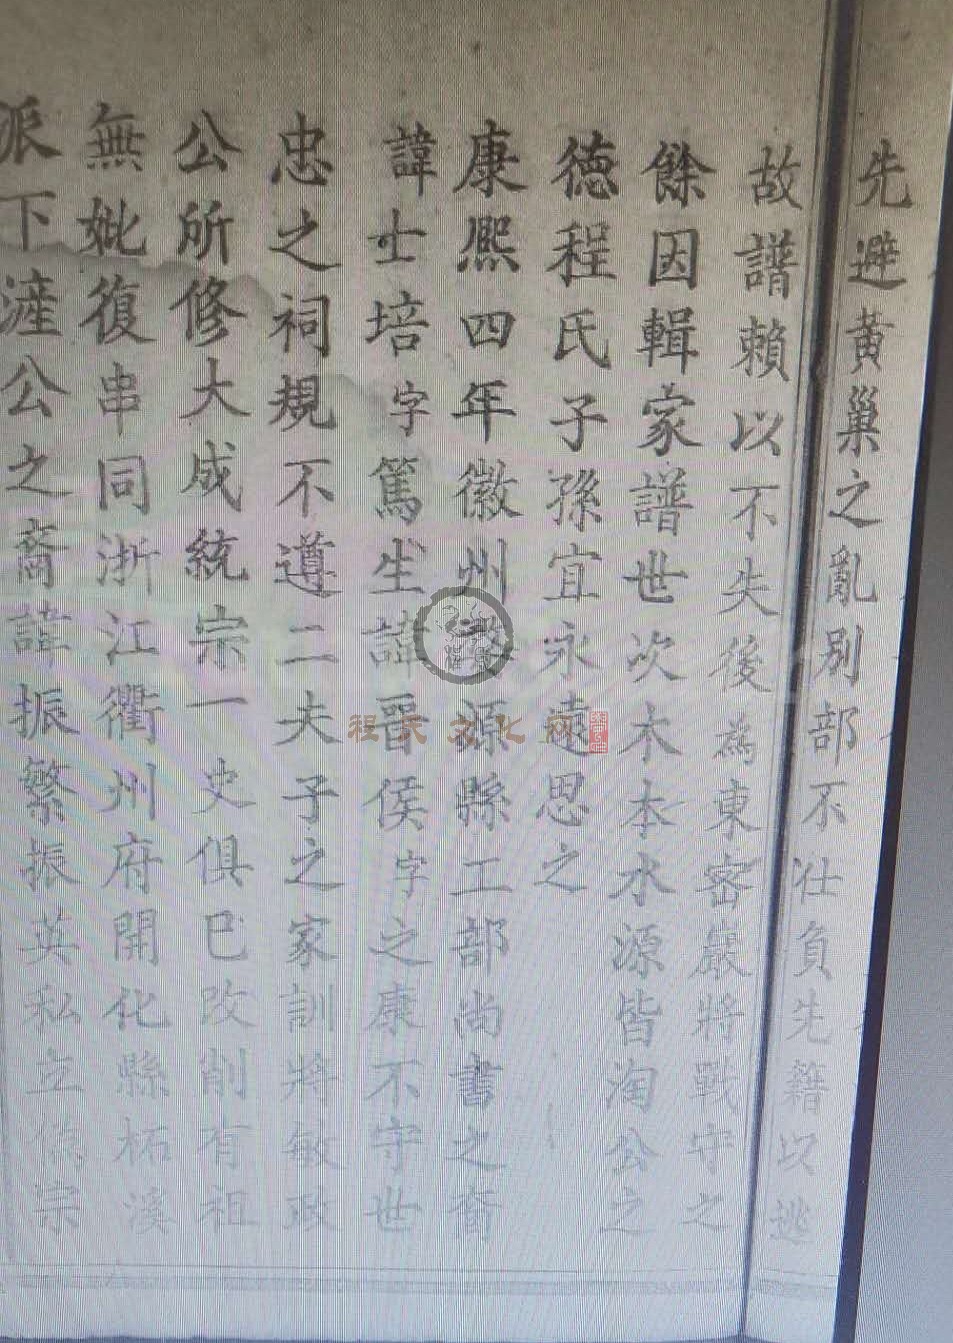 先避黄巢之亂別部不仕負先籍以逃
故譜賴以不失後為東密巖將戰守之
餘因輯家譜世次木本水源皆淘公之
德程氏子孫宜永遠思之
康熙四年徽州婺源縣工部尚書之裔
諱士培字篤生諱晉侯字之康不守世
忠之祠規不遵二夫子之家訓將敏政
公所修大成統宗一史俱已改削有祖
無妣復串同浙江衢州府開化縣柘溪
派下漄公之裔諱振繁振英私立偽宗
程天文化网